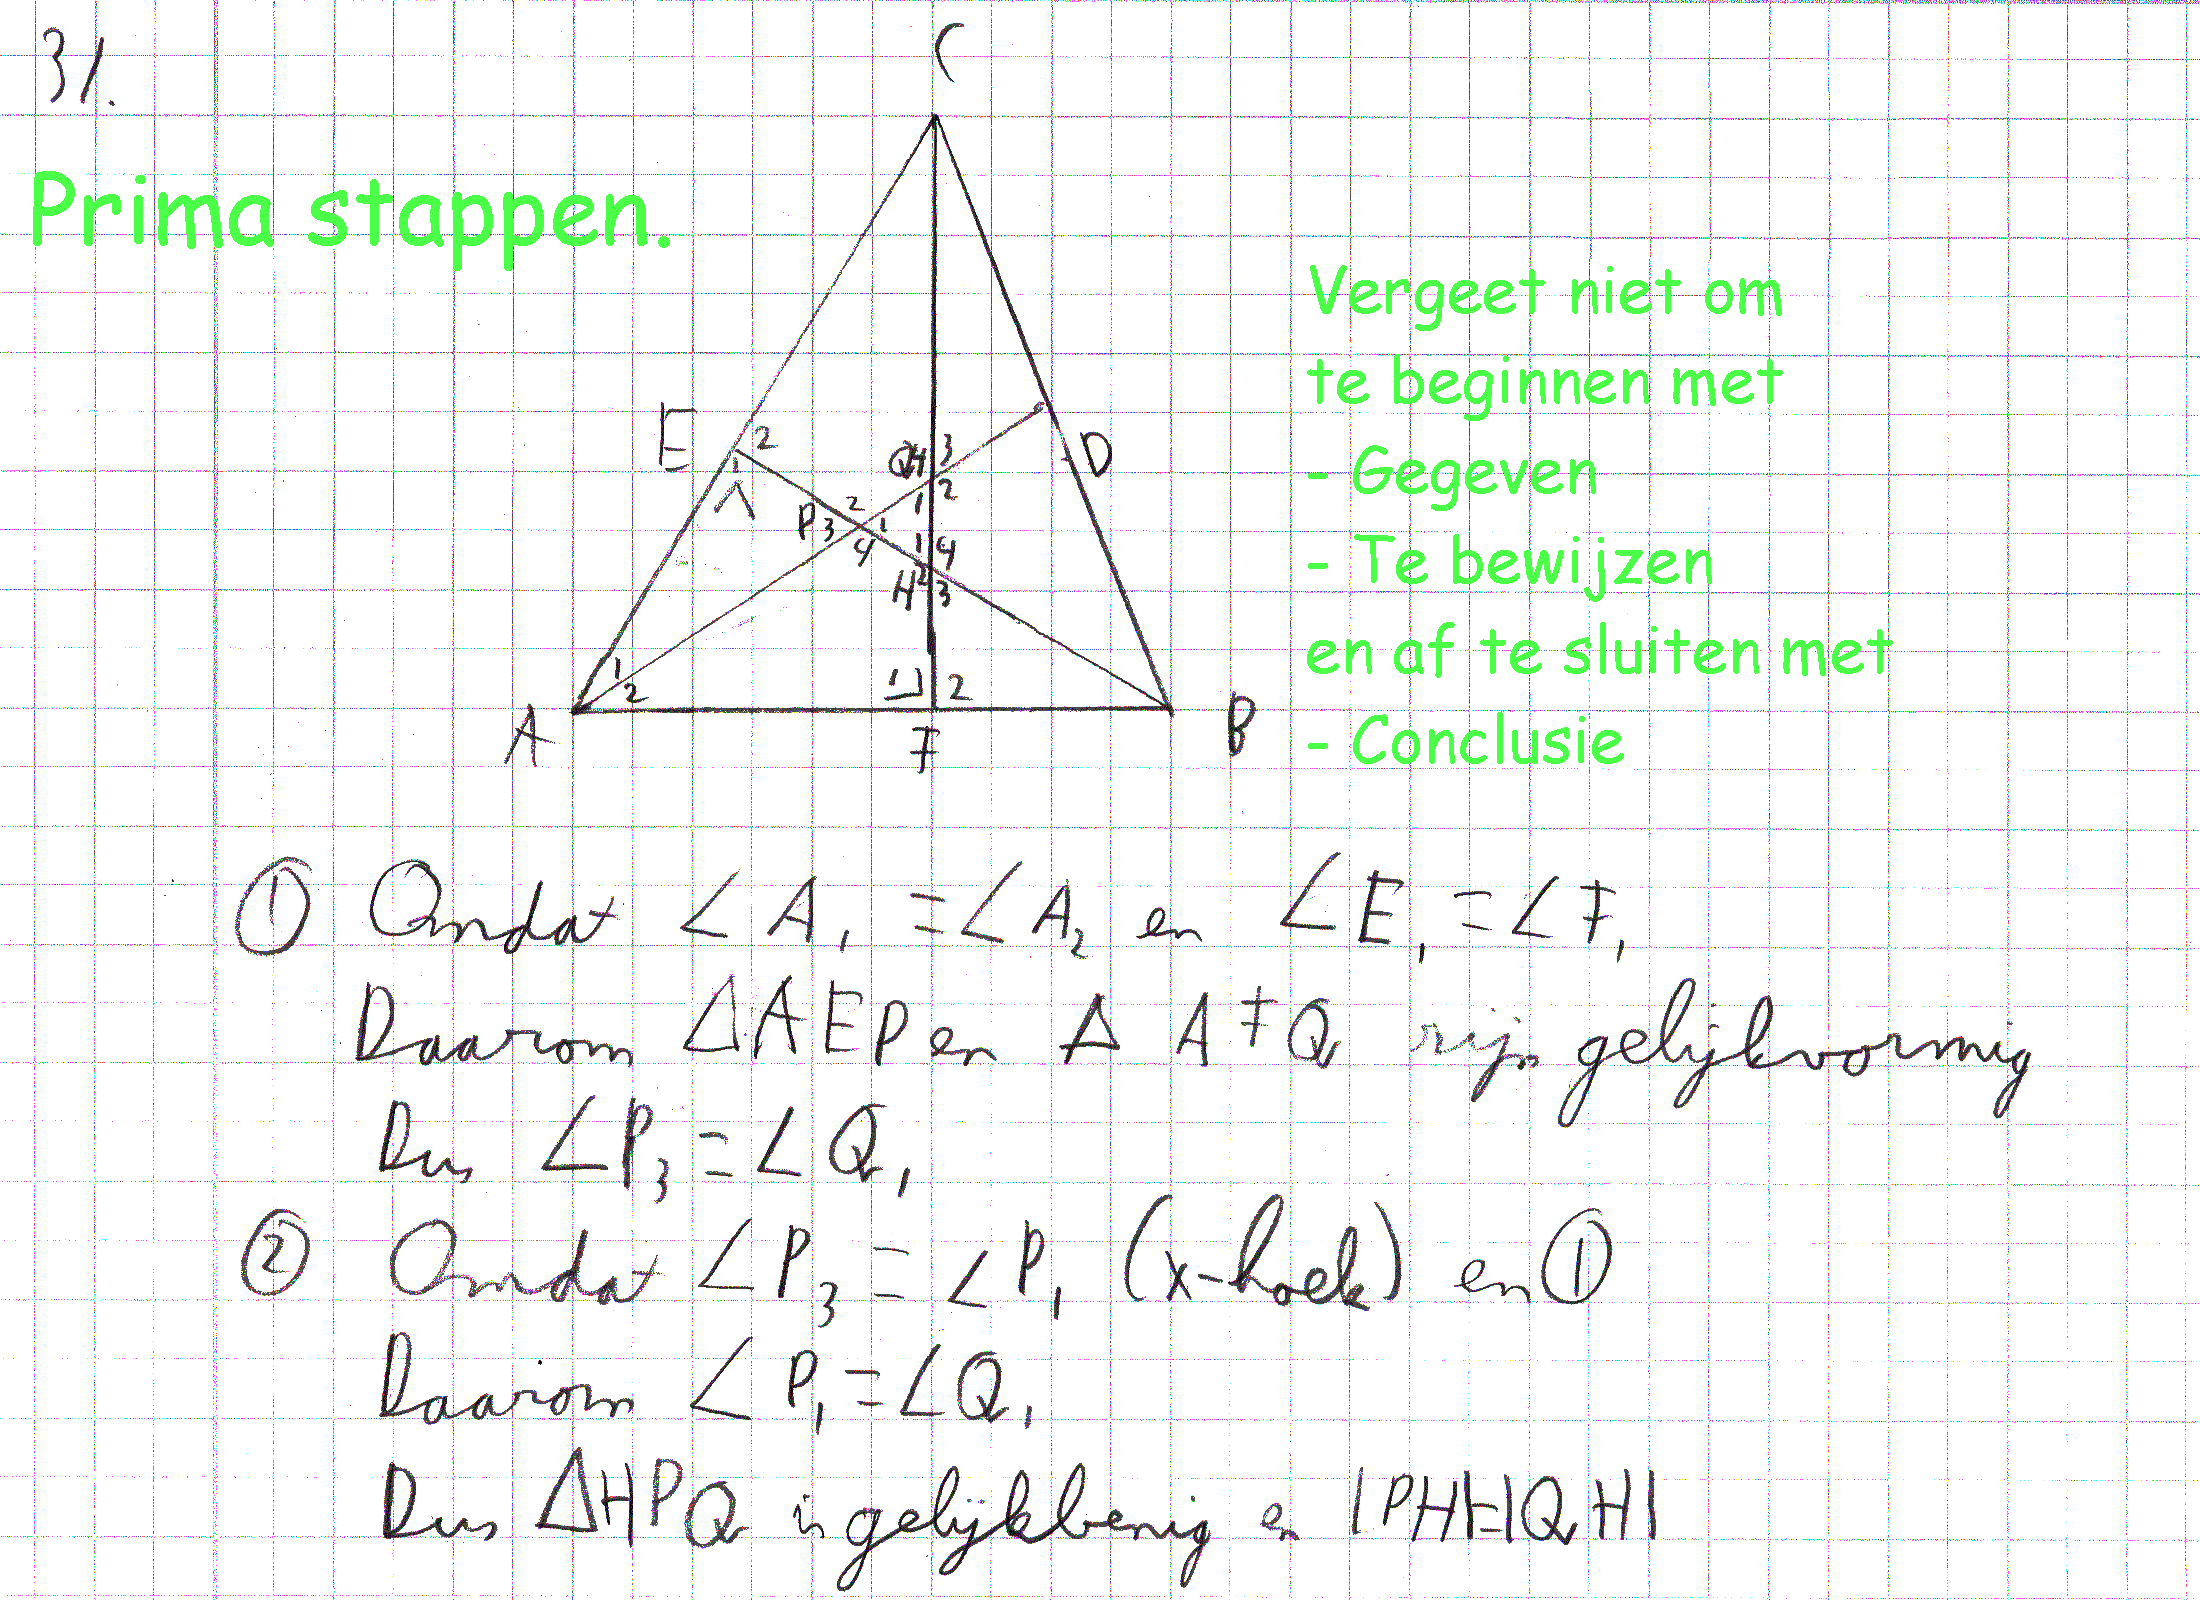 31.
Prima stappen.
Vergeet niet om
te beginnen met
- Gegeven
- Te bewijzen
en af te sluiten met
- Conclusie
C
E 2
1
Q 4 3
1 2
D
P 3 2 1
4
1 4
H 2 3
1
2
1 2
A F B
① Omdat ∠A₁ = ∠A₂ en ∠E₁ = ∠F₁
Daarom ΔAEP en Δ AFQ zijn gelijkvormig
Dus ∠P₃ = ∠Q₁
② Omdat ∠P₃ = ∠P₁ (x-hoek) en ①
Daarom ∠P₁ = ∠Q₁
Dus ΔHPQ is gelijkbenig en |PH|=|QH|